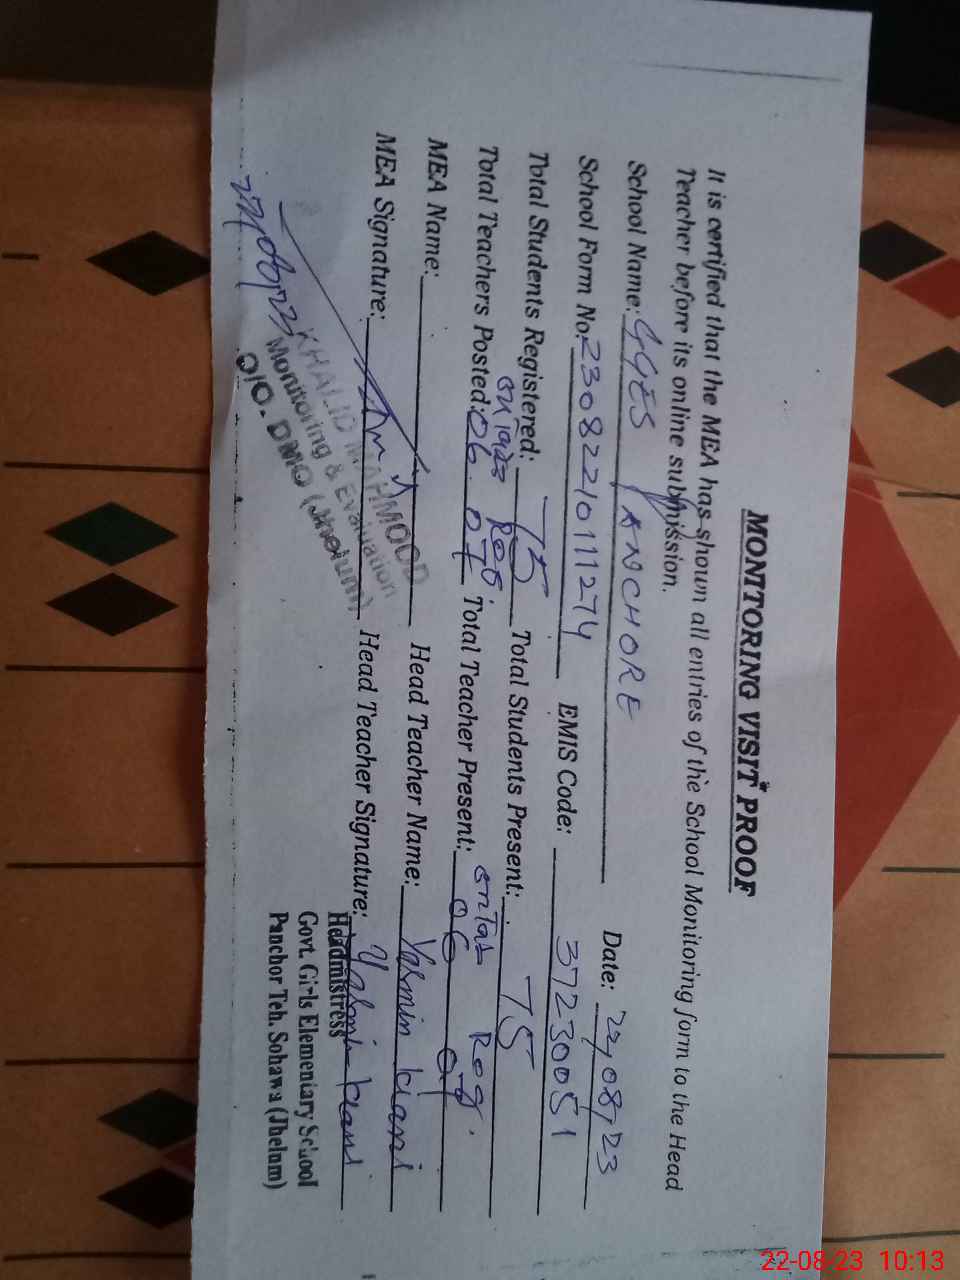 MONITORING VISIT PROOF
It is certified that the MEA has shown all entries of the School Monitoring form to the Head
Teacher before its online submission.
School Name: GGES PANCHORE Date: 22/08/23
School Form No: 2308221011274 EMIS Code: 37230051
Total Students Registered: 75 Total Students Present: 75
Total Teachers Posted: 06 07 Total Teacher Present: 06
MEA Name: Head Teacher Name: Yasmin Kiani
MEA Signature: Head Teacher Signature: Yasmin Kiani
KHALID MAHMOOD
Monitoring & Evaluation
O/O. DMO (Jhelum)
Headmistress
Govt. Girls Elementary School
Panchor Teh. Sohawa (Jhelum)
22-08-23 10:13